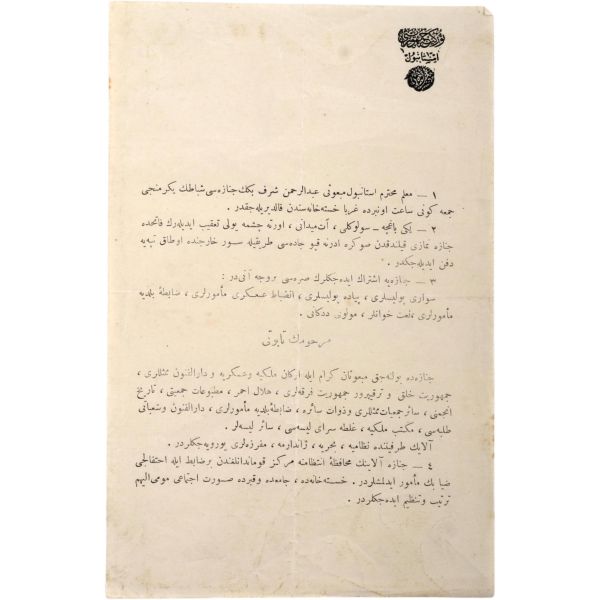 استانبول
١ — معلم محترم استانبول مبعوثی عبدالرحمن شرف بكك جنازه‌سی شباطك يكرمنجی
جمعه كونی ساعت اونبرده غربا خسته‌خانه‌سندن قالديريله‌جقدر.
٢ — يكی باغچه – سولوكلی، آت ميدانی، اورته چشمه يولی تعقيب ايديله‌رك فاتحده
جنازه نمازی قيلندقدن صوكره ادرنه قپو جاده‌سی طريقيله سور خارجنده اوطاق تپه‌يه
دفن ايديله‌جكدر.
٣ — جنازه‌يه اشتراك ايده‌جكلرك صره‌سی بروجه آتی‌در :
سواری پوليسلری، پياده پوليسلری، انضباط عسكری مأمورلری، ضابطهٔ بلديه
مأمورلری، نعت خوانلر، مولوی دده‌كانی.
مرحومك تابوتی
جنازه‌ده بولنه‌جق مبعوثان كرام ايله اركان ملكيه وعسكريه و دارالفنون ممثللری،
جمهوريت خلق و ترقيپرور جمهوريت فرقه‌لری، هلال احمر، مطبوعات جمعيتی، تاريخ
انجمنی، سائر جمعيات ممثللری و ذوات سائره، ضابطهٔ بلديه مأمورلری، دارالفنون وشعباتی
طلبه‌سی، مكتب ملكيه، غلطه سرای ليسه‌سی، سائر ليسه‌لر.
آلايك طرفيننده نظاميه، بحريه، ژاندارمه، مفرزه‌لری يورويه‌جكلردر.
٤ — جنازه آلاينك محافظهٔ انتظامنه مركز قوماندانلغندن برضابط ايله احتفالجی
ضيا بك مأمور ايدلمشلردر. خسته‌خانه‌ده، جامعده وقبرده صورت اجتماعی مومی‌اليهم
ترتيب وتنظيم ايده‌جكلردر.